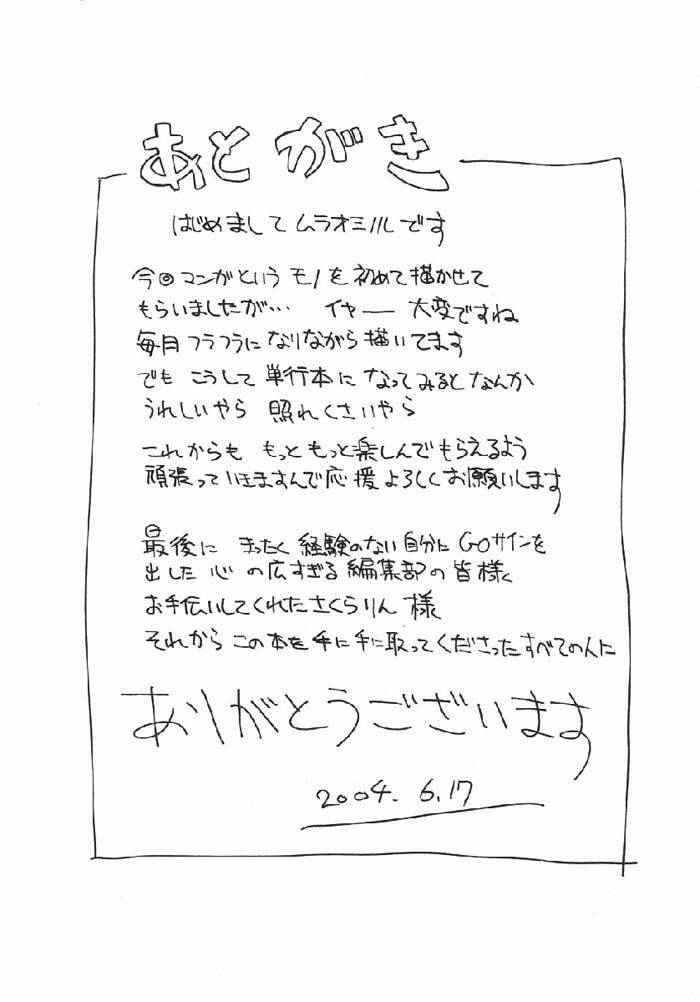 あとがき
はじめまして ムラオミノルです
今回マンガという モノを初めて描かせて
もらいましたが… イヤー 大変ですね
毎月フラフラになりながら描いてます
でも こうして 単行本に なってみるとなんか
うれしいやら 照れくさいやら
これからも もっともっと楽しんでもらえるよう
頑張っていきますんで応援よろしくお願いします
最後に まったく経験のない自分にGOサインを
出した 心の広すぎる編集部の皆様
お手伝いしてくれたさくらりん様
それから この本を手に手に取ってくださったすべての人に
ありがとうございます
2004. 6.17